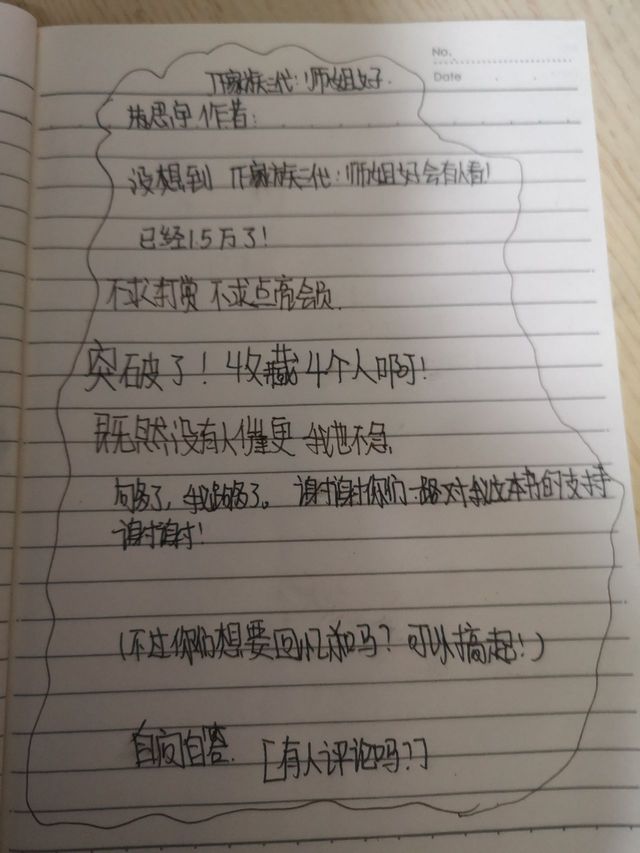 No.
Date
TF家族三代:师姐好.
思宇作者:
没想到 TF家族三代:师姐好会有人看!
已经1.5万了!
不求打赏 不求点亮会员.
突破了!收藏4个人啊!
既然没有人催更 我也不急.
够了,我够了。 谢谢你们一路对我这本书的支持
谢谢!
(不过你们想要回忆和吗?可以搞起!)
自问自答. [有人评论吗?]